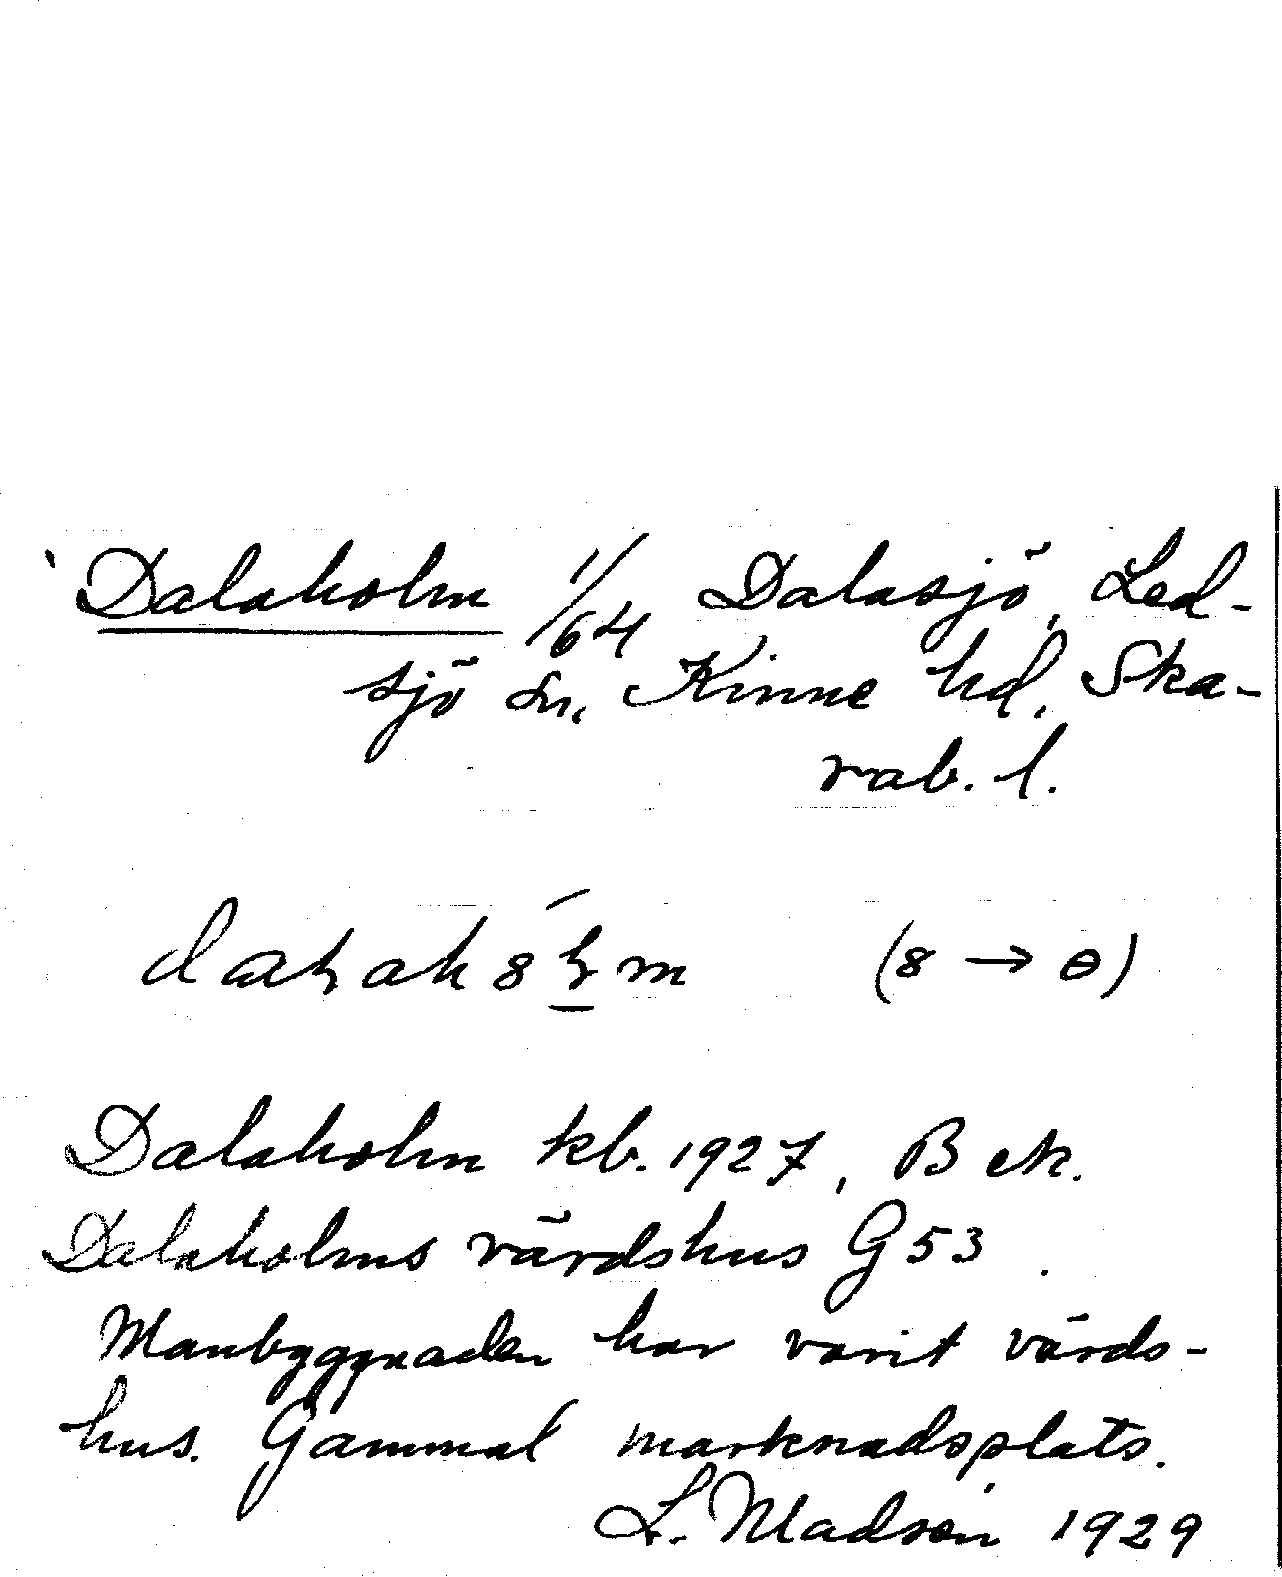 Dalaholm 1/64 Dalasjö, Led-
sjö sn, Kinne hd, Ska-
rab. l.
(8 → ɵ)
Dalaholm kb. 1927, Bek.
Dalaholms värdshus G53.
Manbyggnaden har varit värds-
hus. Gammal marknadsplats.
L. Madsén 1929